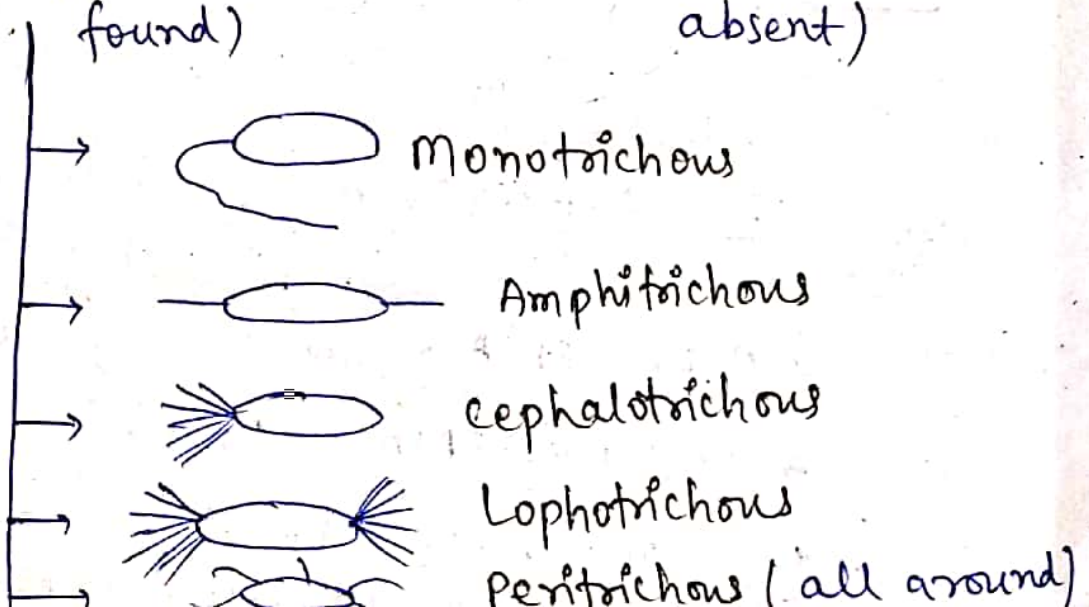 found) absent)
Monotrichous
Amphitrichous
cephalotrichous
Lophotrichous
peritrichous (all around)